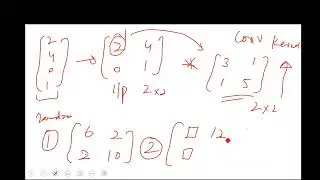 2
4
0
1
2 4
0 1
i/p 2x2
Conv Kernel
3 1
1 5
2x2
random
① 6 2
2 10
② □ 12
□